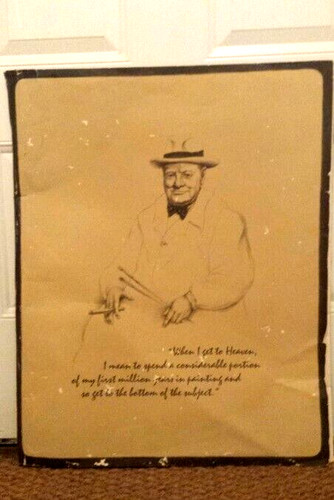 "When I get to Heaven,
I mean to spend a considerable portion
of my first million years in painting and
so get to the bottom of the subject."